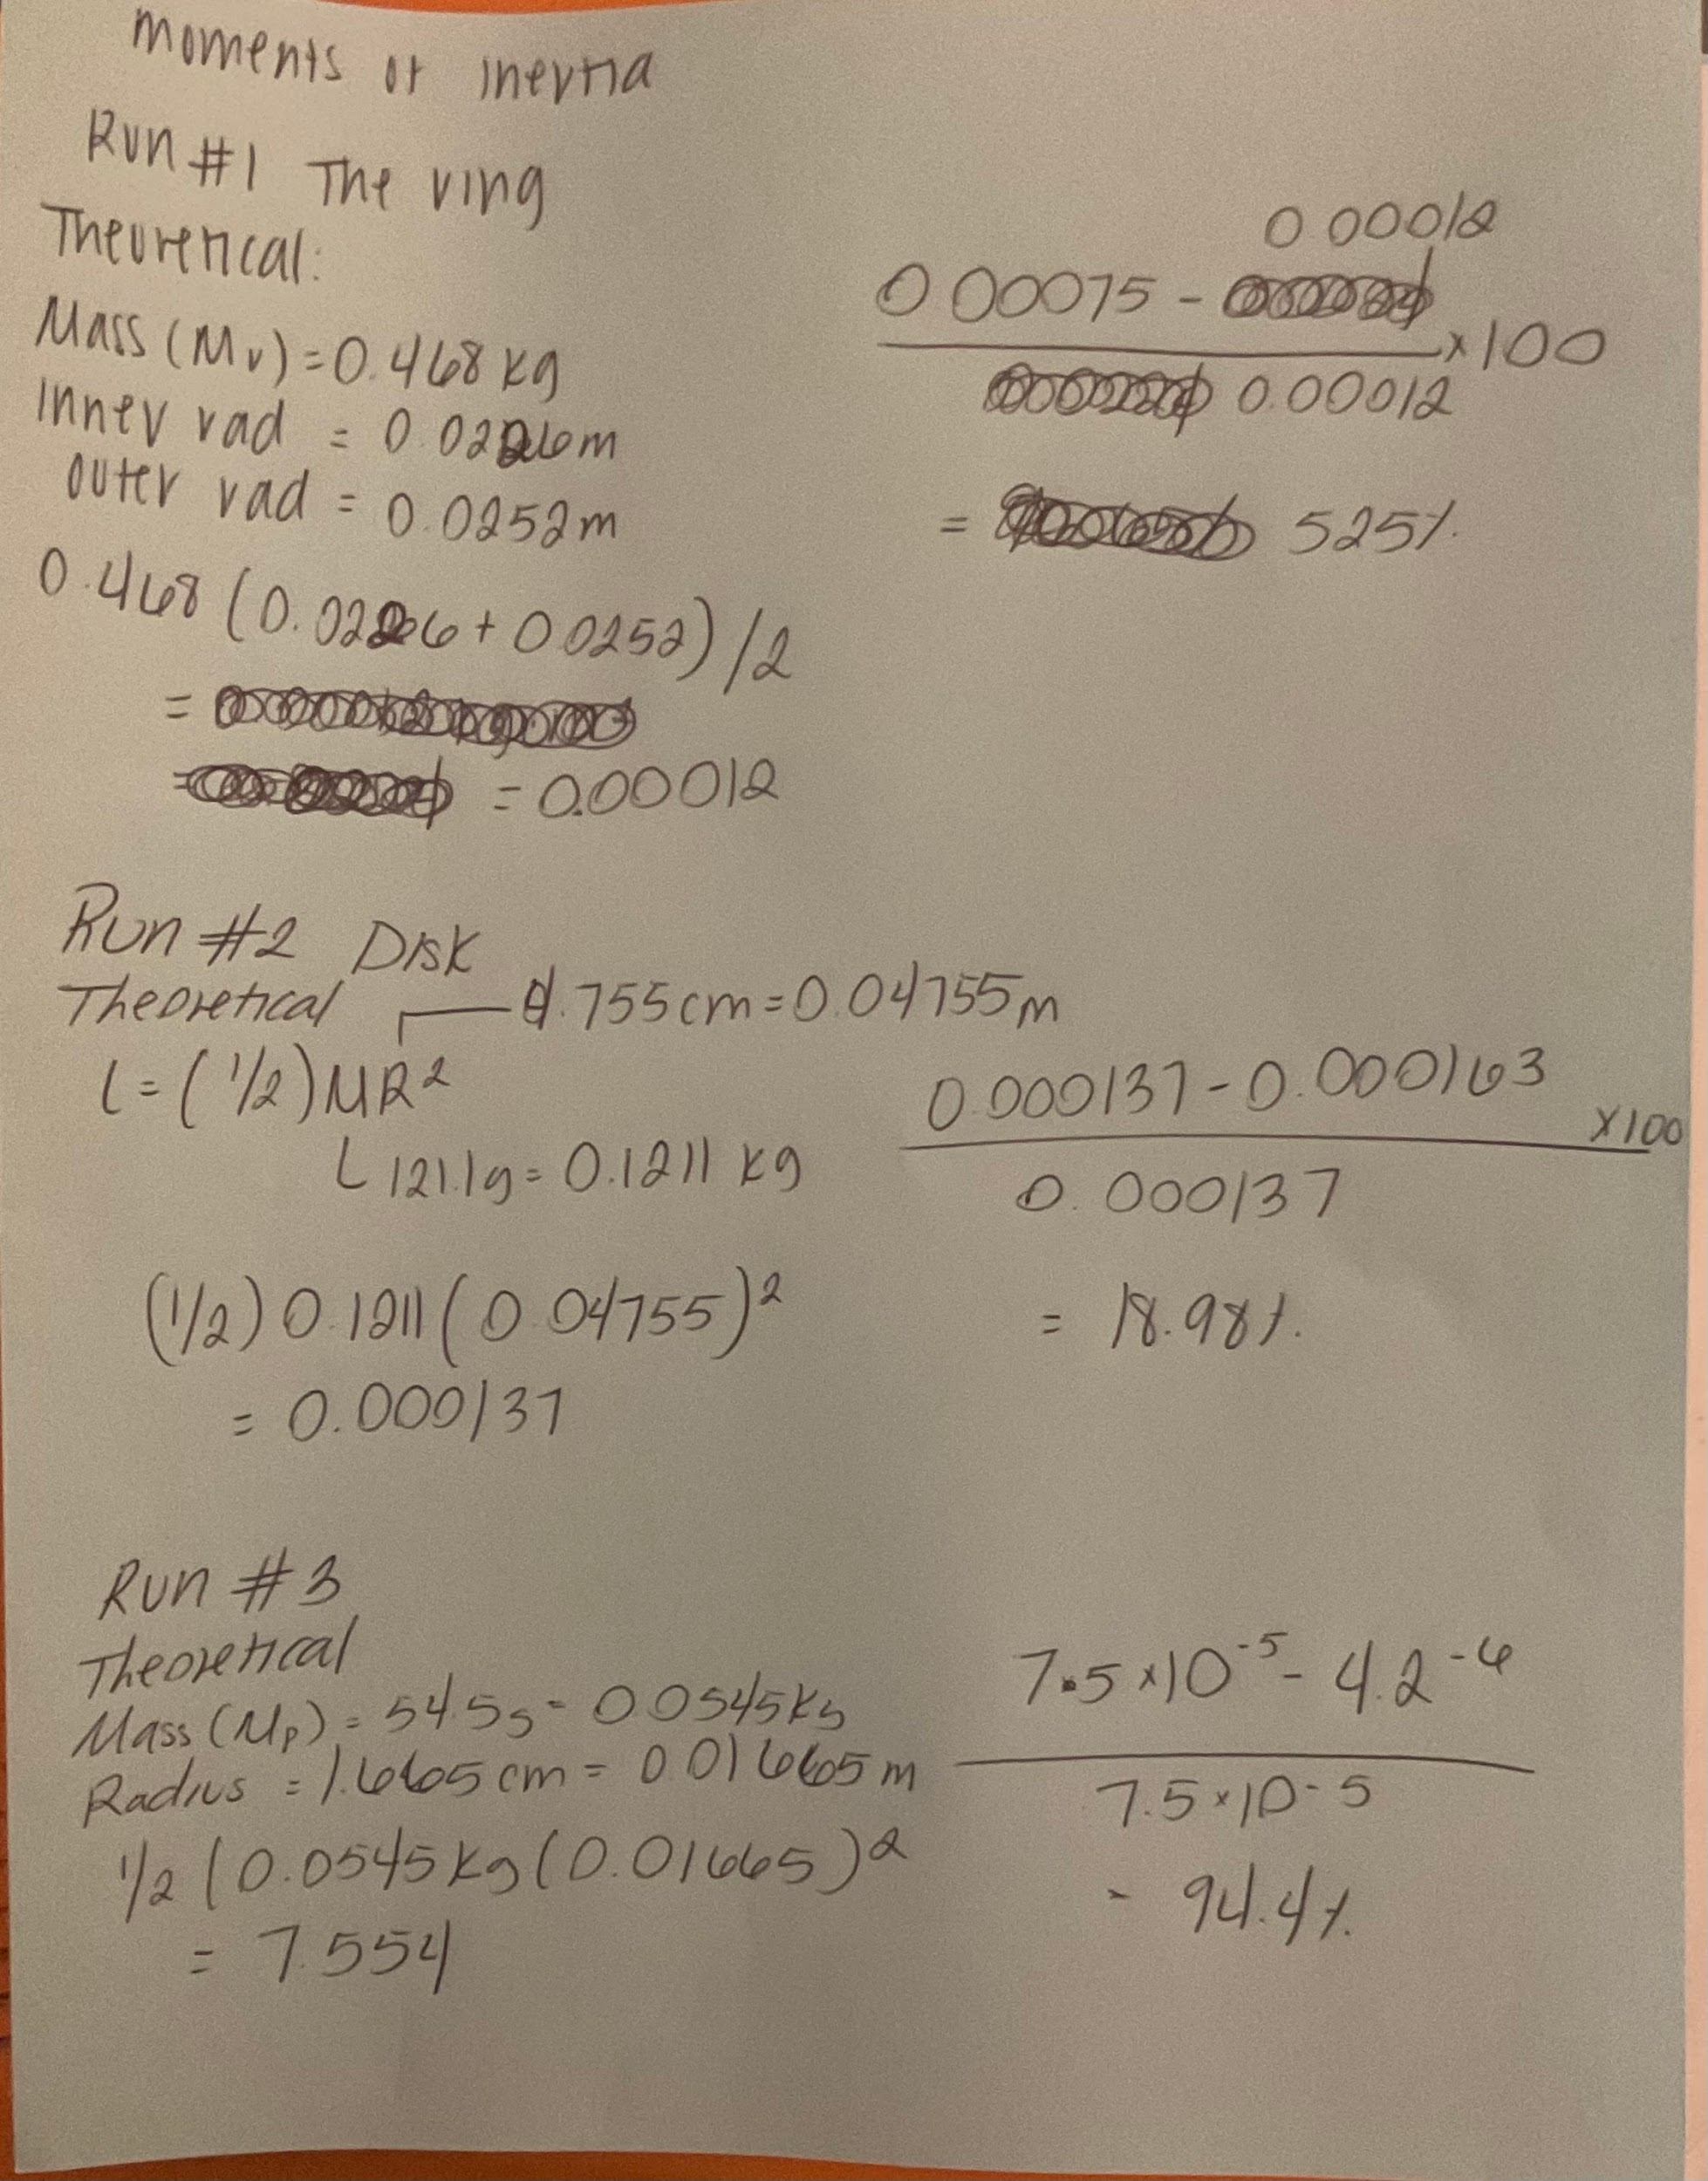 Moments of Inertia
Run #1 The ring
Theoretical:
Mass (Mr) = 0.468 kg
Inner rad = 0.0226m
outer rad = 0.0252m
0.468 (0.0226 + 0.0252) /2
= 0.00012
0.00012
0.00075 -
x100
0.00012
= 525%
Run #2 Disk
Theoretical 4.755cm = 0.04755m
I = (1/2) MR²
121.1g = 0.1211 kg
(1/2) 0.1211 (0.04755)²
= 0.000137
0.000137 - 0.000163
x100
0.000137
= 18.98%
Run #3
Theoretical
Mass (Mp) = 54.5g = 0.0545kg
Radius = 1.665cm = 0.01665m
1/2 (0.0545kg (0.01665)²
= 7.554
7.5 x10⁻⁵ - 4.2⁻⁶
7.5 x 10⁻⁵
= 94.4%